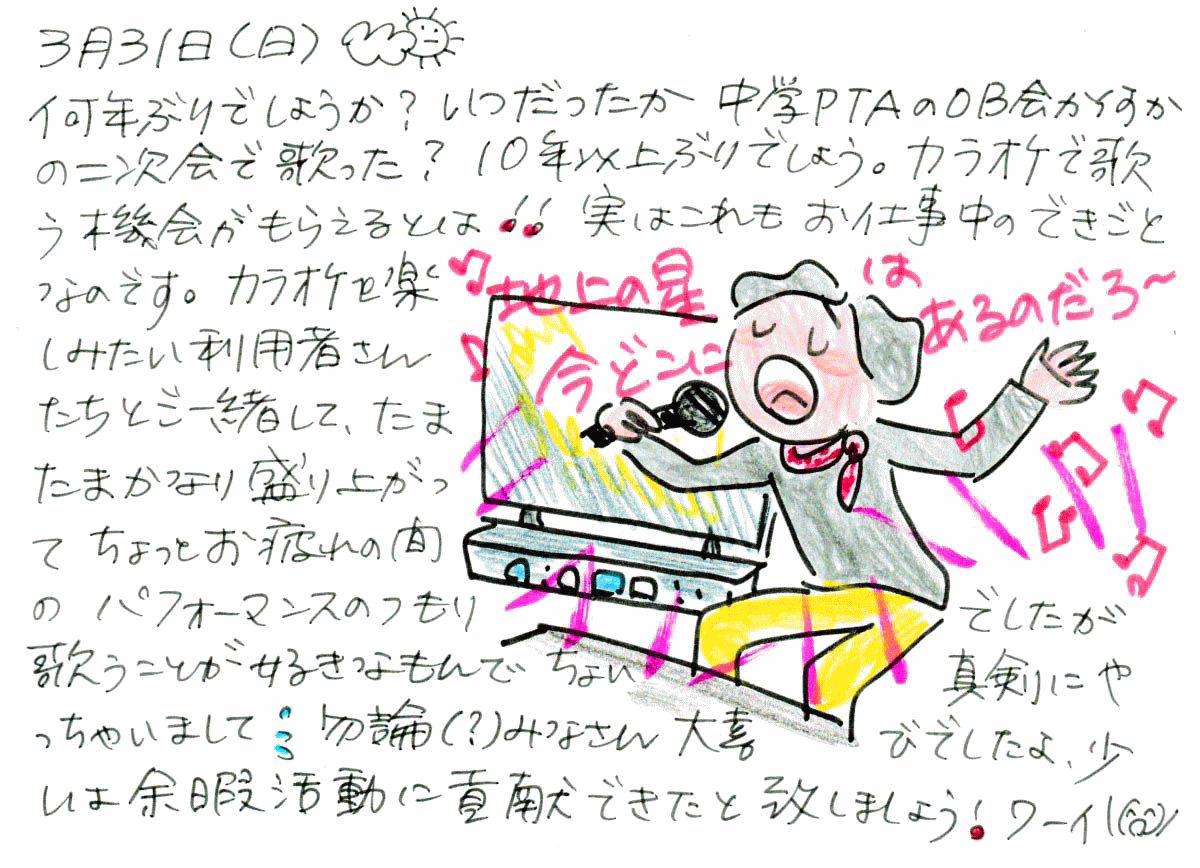 3月31日(日)
何年ぶりでしょうか?いつだったか 中学PTAのOB会かなすか
の二次会で歌った?10年以上ぶりでしょう。カラオケで歌
う機会がもらえるとは!! 実はこれもお仕事中のできごと
なのです。カラオケを楽
しみたい利用者さん
たちとご一緒して、たま
たまかなり盛り上がっ
て ちょっとお疲れの間
の パフォーマンスのつもり でしたが
歌うことが好きなもんで ちょい 真剣にや
っちゃいまして 勿論(?)みなさん 大喜 びでしたよ、少
しは余暇活動に貢献できたと致しましょう!ワーイ
地上の星は
今どこに
あるのだろ〜